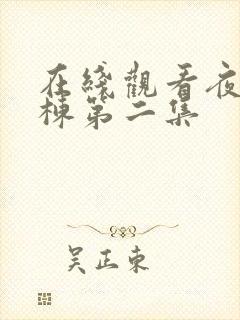 在綫觀看夜
棟第二集
吴正東